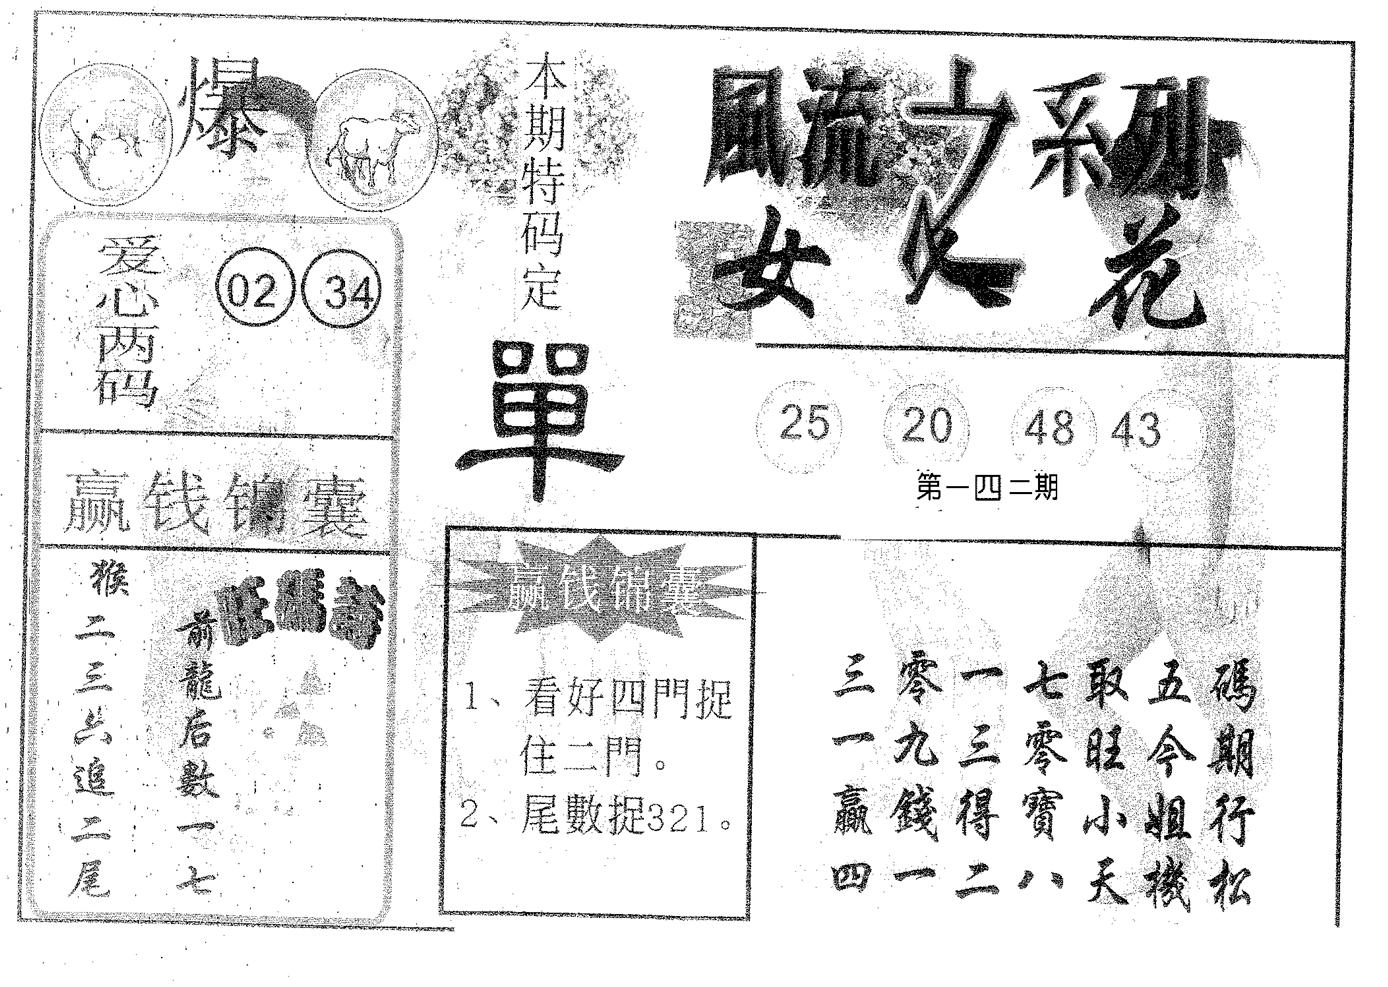 爆
爱心两码
02 34
赢钱锦囊
旺碼詩
前龍后數一七
猴二三六追二尾
本期特码定
單
赢钱锦囊
1、看好四門捉
住二門。
2、尾數捉321。
風流之系列
女人花
25 20 48 43
第一四二期
三零一七取五碼
一九三零旺今期
贏錢得寶小姐行
四一二八天機松